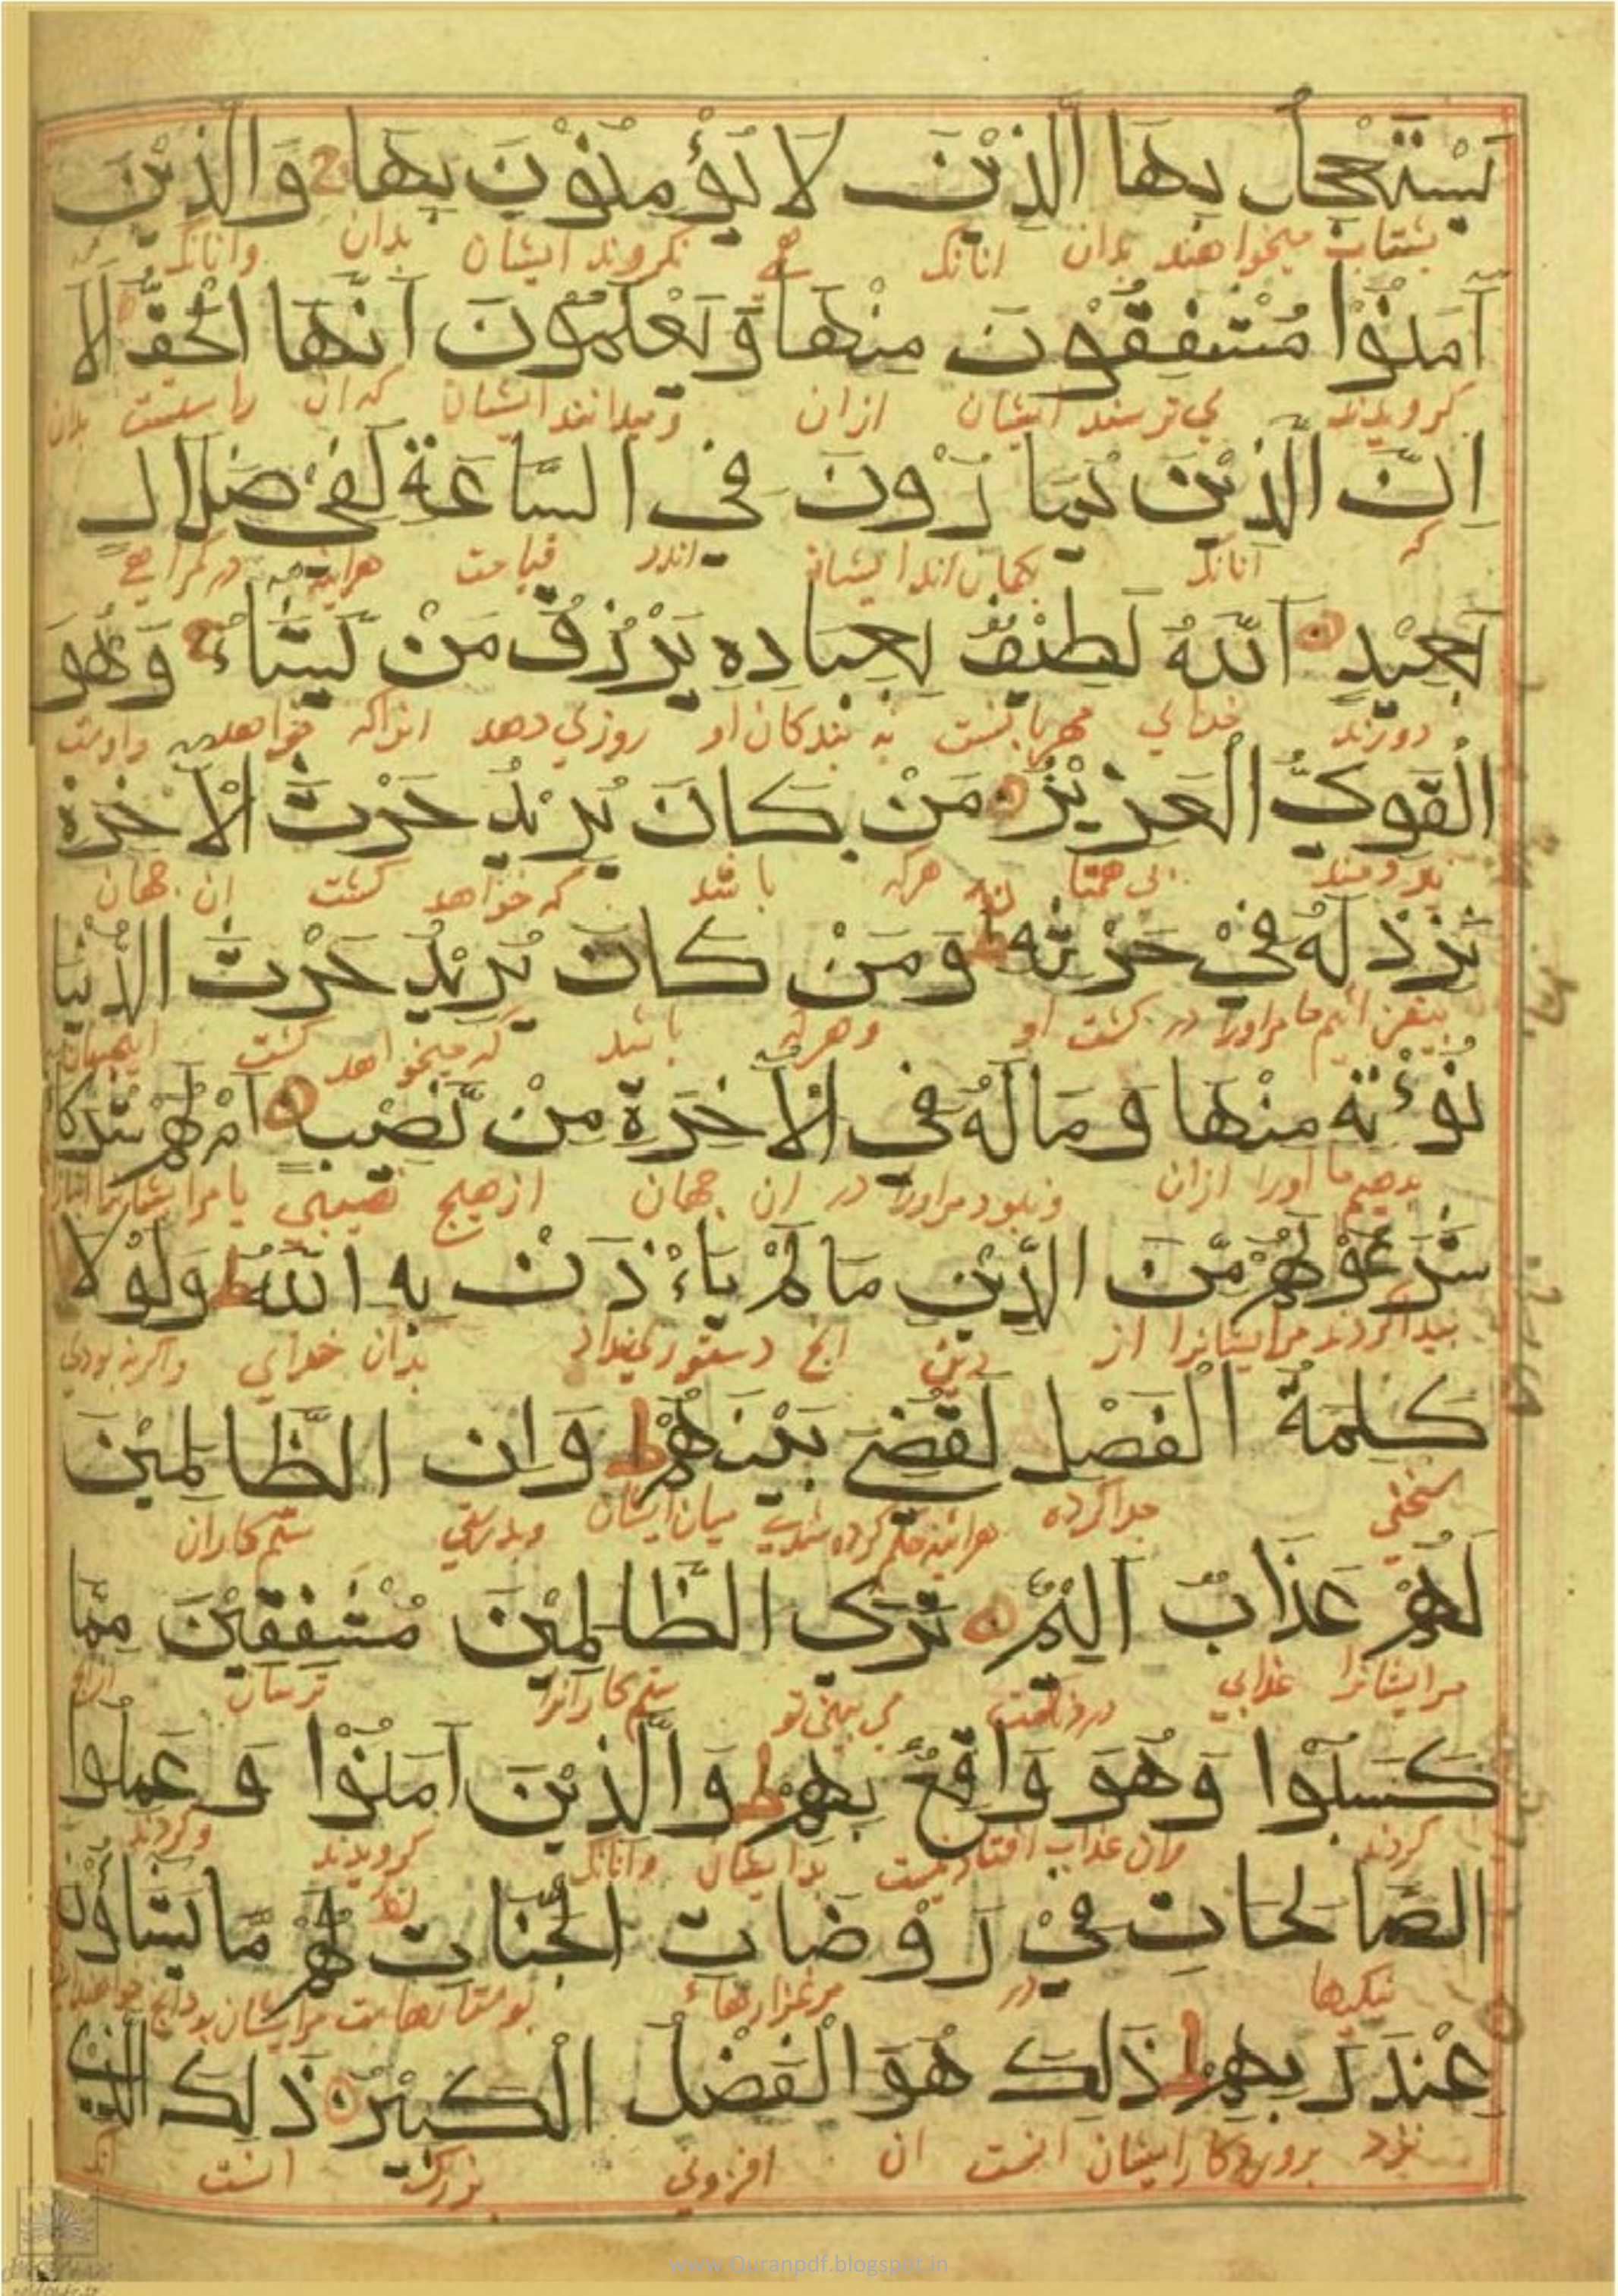 يَسْتَعْجِلُ بِهَا الَّذِيْنَ لَا يُؤْمِنُوْنَ بِهَا وَالَّذِيْنَ
بشتاب میخواهند بدان انانک نکروند ایشان بدان وانانک
آمَنُوْا مُشْفِقُوْنَ مِنْهَا وَيَعْلَمُوْنَ اَنَّهَا الْحَقُّ اَلَا
کرویدند می ترسند ایشان ازان ومیدانند ایشان که ان راستست بدان
اِنَّ الَّذِيْنَ يُمَارُوْنَ فِى السَّاعَةِ لَفِىْ ضَلَالٍ
که انانک بکمان اند ایشان اندر قیامت هراینه در کمراهی
بَعِيْدٍ اَللّٰهُ لَطِيْفٌ بِعِبَادِهِ يَرْزُقُ مَنْ يَشَاءُ وَهُوَ
دورند خدای مهربانست به بندکان او روزی دهد انراکه خواهد واوست
الْقَوِىُّ الْعَزِيْزُ مَنْ كَانَ يُرِيْدُ حَرْثَ الْاٰخِرَةِ
نیرومند بی همتا هرکه باشد که خواهد کشت ان جهان
نَزِدْ لَهُ فِىْ حَرْثِهِ ط وَمَنْ كَانَ يُرِيْدُ حَرْثَ الدُّنْيَا
بیفزائیم ما مراورا در کشت او وهرکه باشد که میخواهد کشت اینجهان
نُؤْتِهِ مِنْهَا وَمَا لَهُ فِى الْاٰخِرَةِ مِنْ نَّصِيْبٍ اَمْ لَهُمْ شُرَكَا
بدهیم ما اورا ازان ونبود مراورا در ان جهان ازهیچ نصیبی یا مرایشانرا
شَرَعُوْا لَهُمْ مِّنَ الدِّيْنِ مَا لَمْ يَاْءْذَنْ بِهِ اللّٰهُ ط وَلَوْ لَا
پیدا کردند مرایشانرا از دین انچ دستوری نداد بدان خدای واکرنه بودی
كَلِمَةُ الْفَصْلِ لَقُضِىَ بَيْنَهُمْ ط وَاِنَّ الظَّالِمِيْنَ
سخنی جدا کرده هراینه حکم کرده شدی میان ایشان وبدرستی ستم کاران
لَهُمْ عَذَابٌ اَلِيْمٌ تَرَى الظَّالِمِيْنَ مُشْفِقِيْنَ مِمَّا
مرایشانرا عذابی دردناکست می بینی تو ستم کارانرا ترسان ازانچ
كَسَبُوْا وَهُوَ وَاقِعٌ بِهِمْ ط وَالَّذِيْنَ آمَنُوْا وَعَمِلُوا
کردند وان عذاب بدایشان وانانک کرویدند وکردند
الصَّالِحَاتِ فِىْ رَوْضَاتِ الْجَنَّاتِ لَهُمْ مَّا يَشَاؤُنَ
نیکیها در مرغزارهاء بوستانهاست مرایشان بود انچ
عِنْدَ رَبِّهِمْ ط ذٰلِكَ هُوَ الْفَضْلُ الْكَبِيْرُ ذٰلِكَ الَّذِىْ
نزد پروردکار ایشان انست ان افزونی بزرک انست انک
www.Quranpdf.blogspot.in